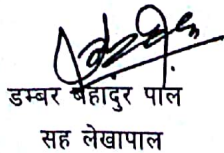 डम्बर बहादुर पाल
सह लेखापाल